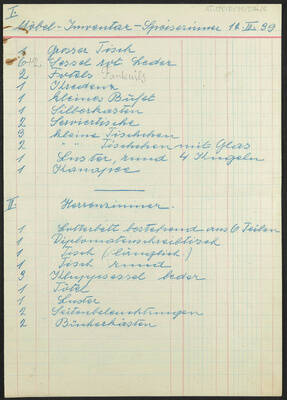 I.
Möbel-Inventar-Speisezimmer 10. II. 39
1 Grosser Tisch
6+2 Sessel rot Leder
2 Fotels Fauteuils
1 Kredenz
1 kleines Büfet
1 Silberkasten
2 Serviertische
3 kleine Tischchen
2 " Tischchen mit Glas
1 Luster, rund 4 Kugeln
1 Kanapee
II. Herrenzimmer.
1 bestehend aus 6 Teilen
1 Diplomatenschreibtisch
1 Tisch (länglich)
1 Tisch rund
3 Klubsessel Leder
1 Fotel
1 Luster
2 Seitenbeleuchtungen
2 Bücherkasten